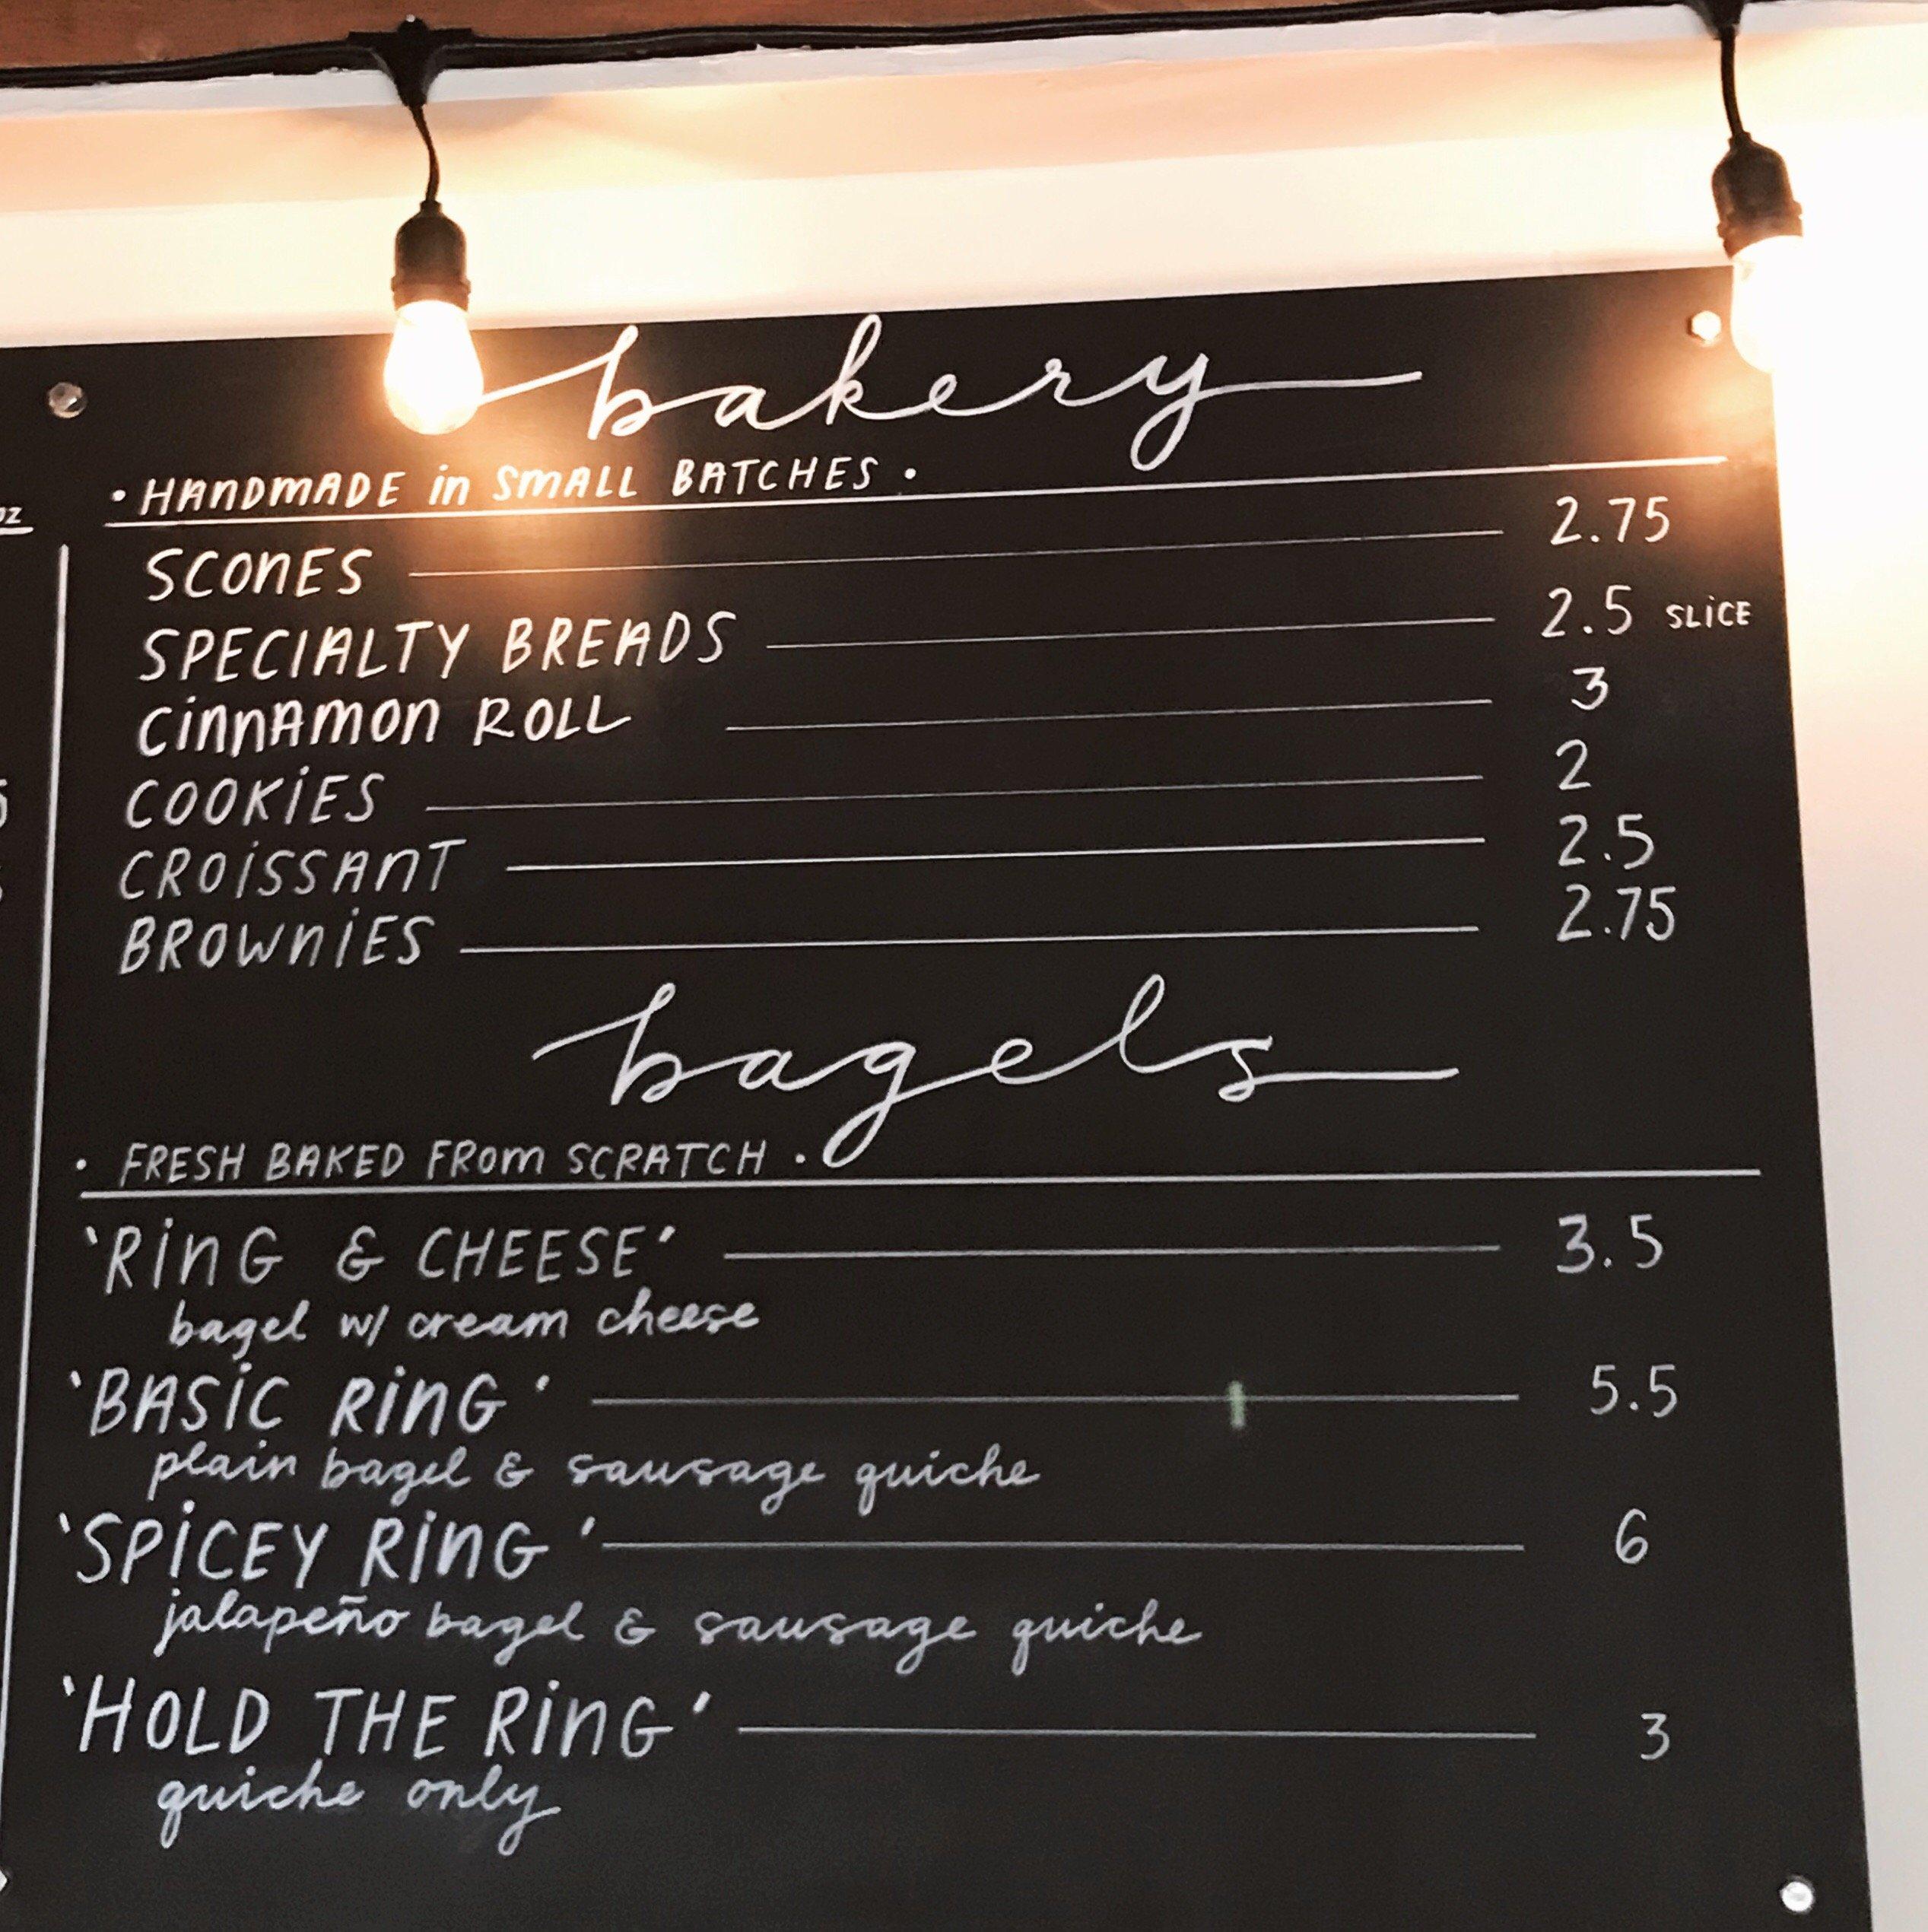 bakery
• HANDMADE in SMALL BATCHES •
SCONES 2.75
SPECIALTY BREADS 2.5 SLICE
CINNAMON ROLL 3
COOKIES 2
CROISSANT 2.5
BROWNIES 2.75
bagels
• FRESH BAKED FROM SCRATCH •
'RING & CHEESE' 3.5
bagel w/ cream cheese
'BASIC RING' 5.5
plain bagel & sausage quiche
'SPICEY RING' 6
jalapeño bagel & sausage quiche
'HOLD THE RING' 3
quiche only